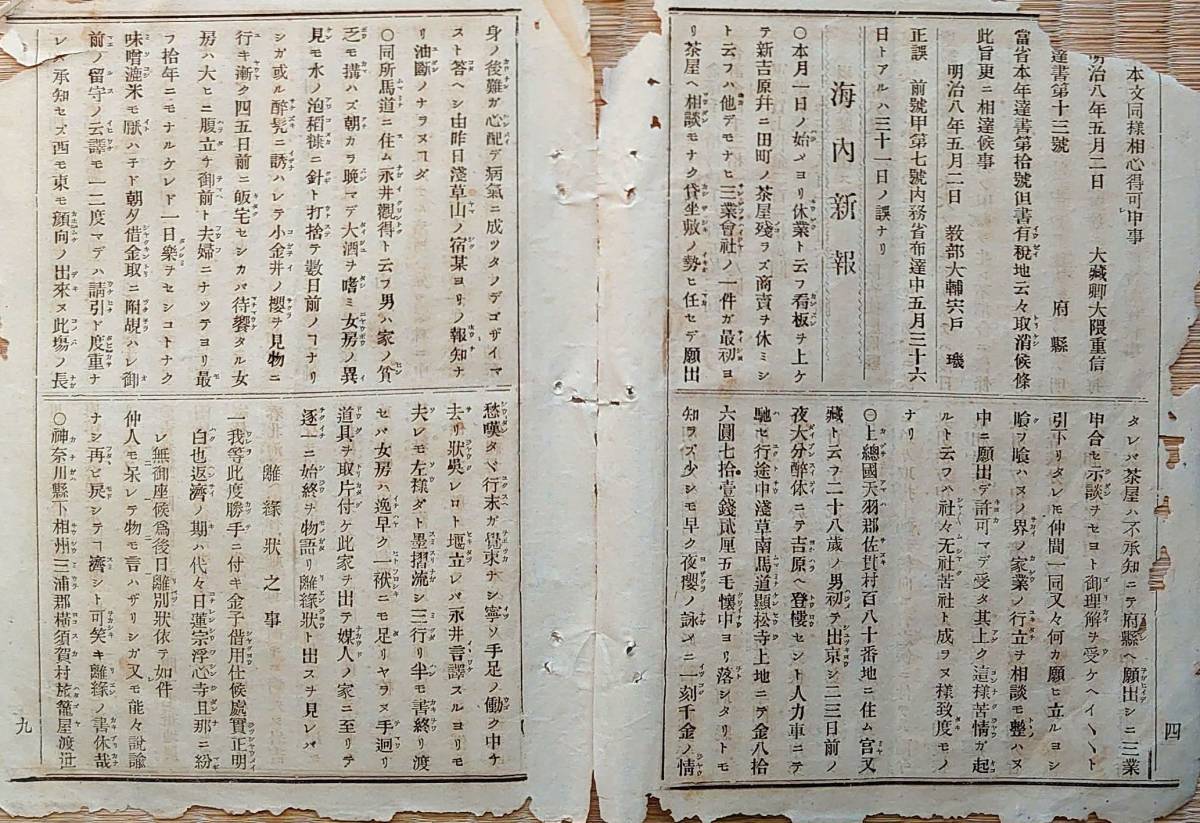 本文同樣相心得可申事
明治八年五月二日　大藏卿大隈重信
達書第十三號
府縣
當省本年達書第拾號但書有税地云々取消候條
此旨更ニ相達候事
明治八年五月二日　教部大輔宍戸　璣
正誤　前號甲第七號内務省布達中五月三十六
日トアルハ三十一日ノ誤ナリ
海内新報
〇本月一日ノ始メヨリ休業ト云フ看板ヲ上ケ
テ新吉原幷ニ田町ノ茶屋殘ラズ商賣ヲ休ミシ
ト云フハ他デモナヒ三業會社ノ一件ガ最初ヨ
リ茶屋ヘ相談モナク貸坐敷ノ勢ヒ任セデ願出
タレバ茶屋ハ不承知ニテ府縣ヘ願出シニ三業
申合セ示談ヲセヨト御理解ヲ受ケヘイ〱ト
引下リタレ𪜈仲間一同又々何カ願ヒ立ルヨシ
喰フ喰ハヌノ界ノ家業ノ行立ヲ相談モ整ハヌ
中ニ願出デ許可マデ受タ其上ク這樣苦情ガ起
ルト云フハ社々无社苦社ト成ラヌ樣致度モノ
ナリ
〇上總國天羽郡佐貫村百八十番地ニ住ム宮又
藏ト云フ二十八歳ノ男初テ出京シ二三日前ノ
夜大分醉休ニテ吉原ヘ登樓セシト人力車ニテ
馳セ行途中淺草南馬道顯松寺上地ニテ金八拾
六圓七拾壹錢貳厘五毛懷中ヨリ落シタリトモ
知ラズ少シモ早ク夜櫻ノ詠メニ一刻千金ノ情
四
身ノ後難ガ心配デ病氣ニ成ツタノデゴザイマ
スト答ヘシ由昨日淺草山ノ宿某ヨリノ報知ナ
リ油斷ノナラヌヿダ
〇同所馬道ニ住ム永井觀得ト云フ男ハ家ノ貧
乏モ搆ハズ朝カラ晩マデ大酒ヲ嗜ミ女房ノ異
見モ水ノ泡稻糠ニ針ト打捨テ數日前ノヿナリ
シガ或ル醉髡ニ誘ハレテ小金井ノ櫻ヲ見物ニ
行キ漸ク四五日前ニ皈宅セシカバ待饗タル女
房ハ大ヒニ腹立チ御前ト夫婦ニナツテヨリ最
フ拾年ニモナルケレド一日樂ヲセシコトナク
味噌漉米モ厭ハテド朝夕借金取ニ附覘ハレ御
前ノ留守ノ云譯モ一二度マデハ請引ド度重ナ
レバ承知セズ西モ東モ顔向ノ出來ヌ此塲ノ長
愁嘆タヾ行末ガ覺束ナシ寧ソ手足ノ働ク中ケ
去リ狀吳レロト堰立レバ永井言譯スルヨリモ
夫レモ左樣ダト墨摺流シ三行リ半モ書終リ渡
セバ女房ハ逸早ク一袱ニモ足リヤラヌ手𢌞リ
道具ヲ取片付ケ此家ヲ出テ媒人ノ家ニ至リテ
逐一ニ始終ヲ物語リ離緣狀ト出スヲ見レバ
離緣狀之事
一我等此度勝手ニ付キ金子借用仕候處實正明
白也返濟ノ期ハ代々日蓮宗浮心寺旦那ニ紛
レ無御座候爲後日離別狀依テ如件
仲人モ呆レテ物モ言ハザリシガ又モ能々說諭
ナシ再ヒ戻シテヿ濟シト可笑キ離緣ノ書休哉
〇神奈川縣下相州三浦郡橫須賀村旅籠屋渡世
九